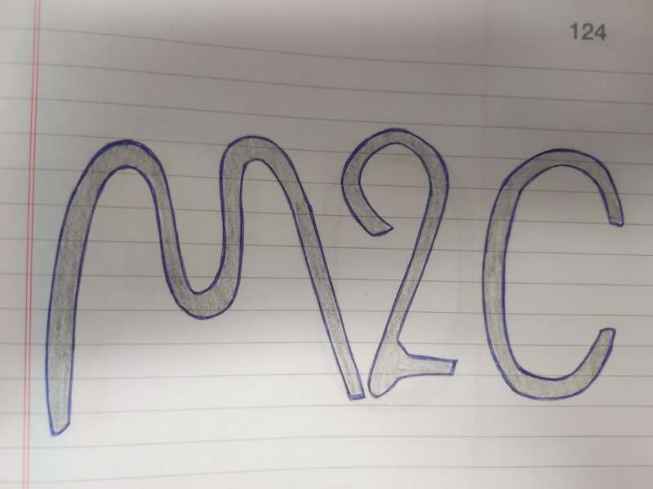 124
M2C